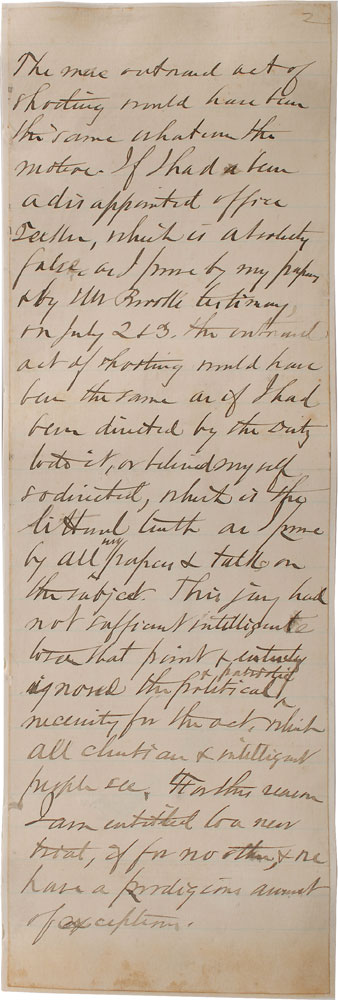 2
The mere outward act of
shooting would have been
the same whatever the
motive. If I had been
a disappointed office
seeker, which is absolutely
false, as I prove by my papers
& by Mr Brooks testimony,
on July 2 & 3. the outward
act of shooting would have
been the same as if I had
been directed by the Deity
to do it, or believed myself
so directed, which is the
litteral truth as I prove
by all my papers & talk on
the subject. This jury had
not sufficient intelligence
to see that point & entirely
ignored the political & patriotic
necessity for the act, which
all christian & intelligent
people see. For this reason
I am entitled to a new
trial, if for no other, & we
have a prodigious amount
of exceptions.